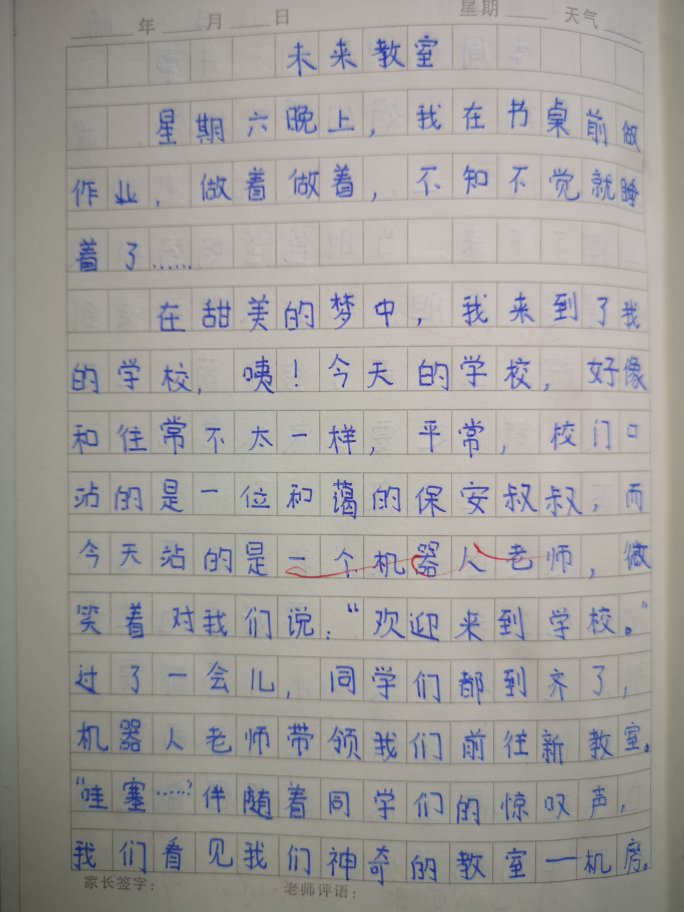 年 月 日 星期 天气
未来教室
星期六晚上，我在书桌前做
作业，做着做着，不知不觉就睡
着了……
在甜美的梦中，我来到了我
的学校，咦！今天的学校，好像
和往常不太一样，平常，校门口
站的是一位和蔼的保安叔叔，而
今天站的是一个机器人老师，微
笑着对我们说：“欢迎来到学校。”
过了一会儿，同学们都到齐了，
机器人老师带领我们前往新教室。
“哇塞……”伴随着同学们的惊叹声，
我们看见我们神奇的教室一机房。
家长签字： 老师评语：